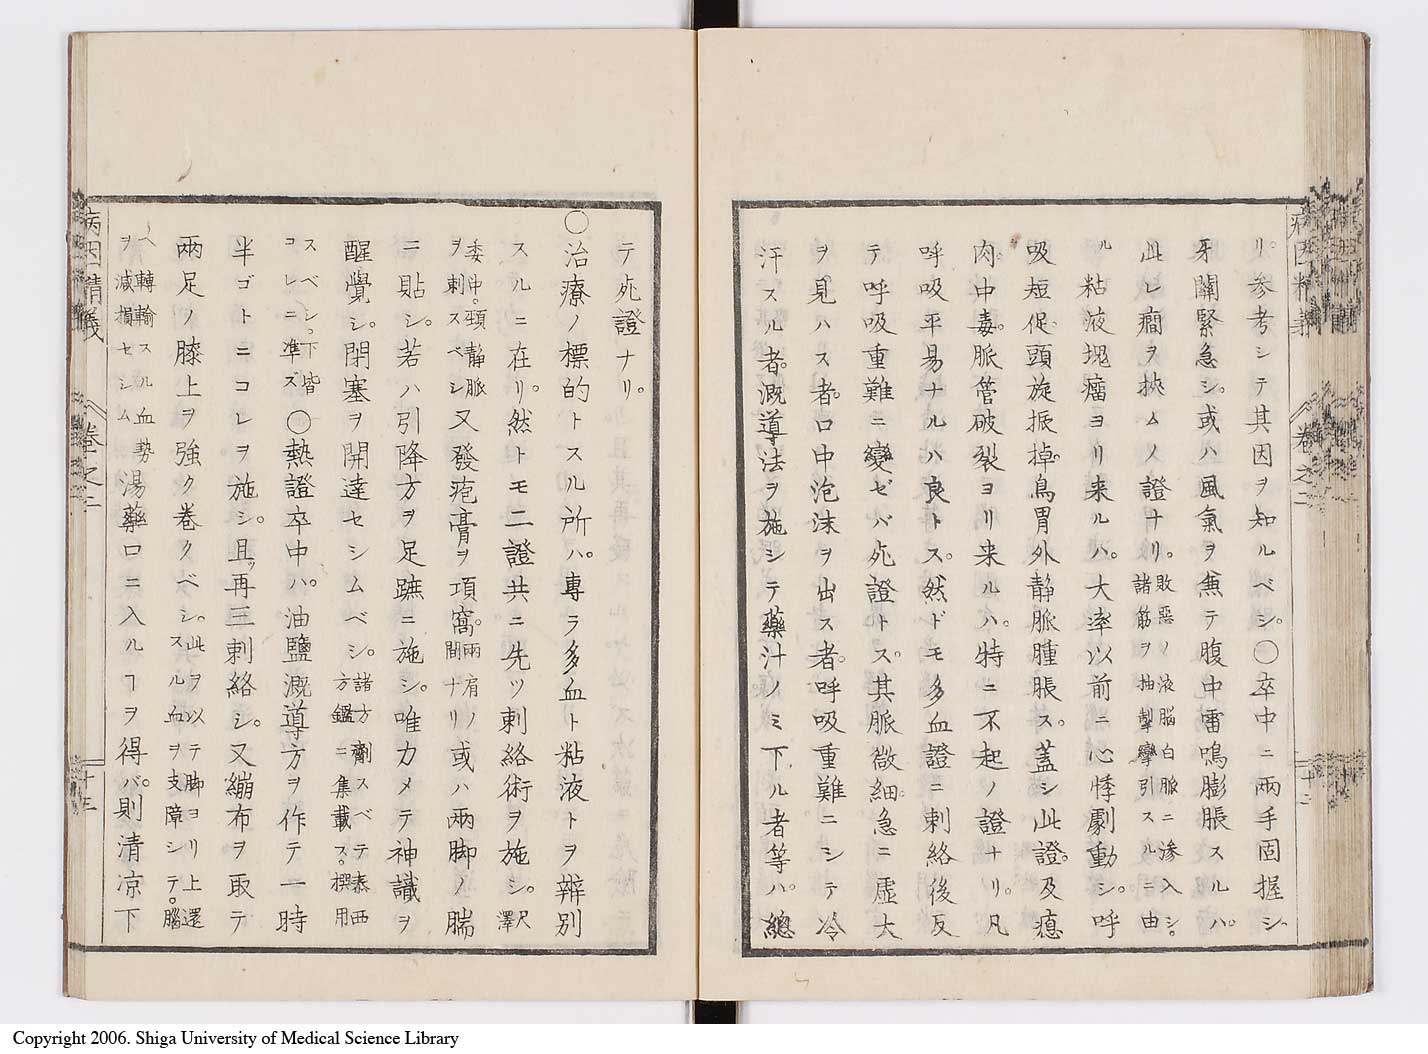 リ。参考シテ其因ヲ知ルベシ。〇卒中ニ兩手固握シ
牙關緊急シ。或ハ風氣ヲ兼テ腹中雷鳴膨脹スルハ。
此レ癇ヲ挾ムノ證ナリ。敗惡ノ液脳白脈ニ滲入シ。諸筋ヲ抽掣攣引スルニ由
ル粘液塊瘤ヨリ来ルハ。大率以前ニ心悸劇動シ。呼
吸短促。頭旋振掉。鳥胃外静脈腫脹ス。蓋シ此證。及癋
肉。中毒。脈管破裂ヨリ来ルハ。特ニ不起ノ證ナリ。凡
呼吸平易ナルハ良トス。然ドモ多血證ニ刺絡後反
テ呼吸重難ニ變ゼバ死證トス。其脈微細。急ニ虚大
ヲ見ハス者。口中泡沫ヲ出ス者。呼吸重難ニシテ冷
汗スル者。漑導法ヲ施シテ藥汁ノミ下ル者等ハ。總
病因精義 卷之二 十三
テ死證ナリ。
〇治療ノ標的トスル所ハ。專ラ多血ト粘液トヲ辨別
スルニ在リ。然トモ二證共ニ先ツ刺絡術ヲ施シ。尺澤
委中。頸静脈ヲ刺スベシ又發疱膏ヲ項窩。兩肩ノ間ナリ或ハ兩脚ノ腨
ニ貼シ。若ハ引降方ヲ足蹠ニ施シ。唯力メテ神識ヲ
醒覺シ。閉塞ヲ開達セシムベシ。諸方劑スベテ泰西方鑑ニ集載ス。撰用
スベシ。下皆コレニ準ズ〇熱證卒中ハ。油鹽漑導方ヲ作テ一時
半ゴトニコレヲ施シ。且ツ再三刺絡シ。又繃布ヲ取テ
兩足ノ膝上ヲ強ク巻クベシ。此ヲ以テ脚ヨリ上還スル血ヲ支障シテ。腦
ヘ轉輸スル血勢ヲ減損セシム湯藥口ニ入ルヿヲ得バ。則清凉下
病因精義 卷之二 十三
Copyright 2006. Shiga University of Medical Science Library